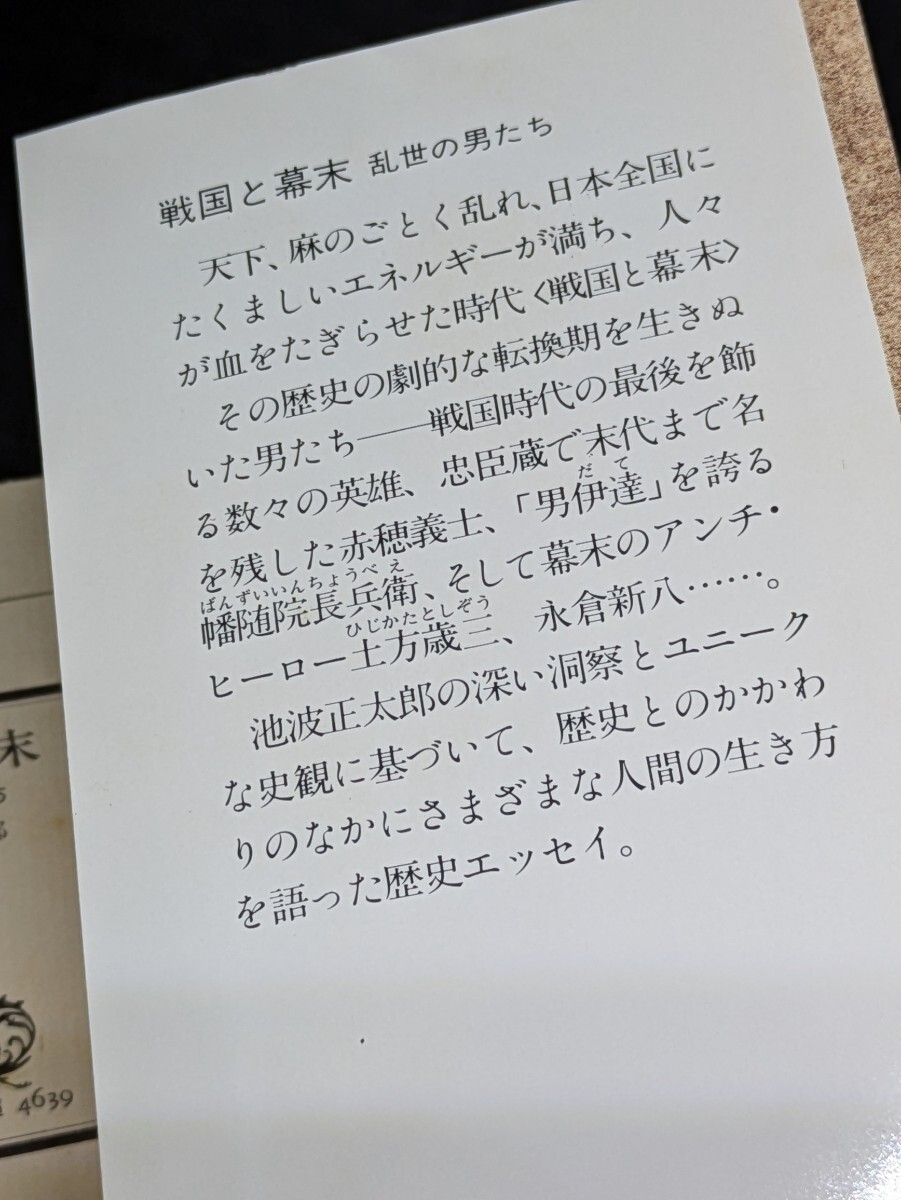 戦国と幕末 乱世の男たち
天下、麻のごとく乱れ、日本全国に
たくましいエネルギーが満ち、人々
が血をたぎらせた時代〈戦国と幕末〉
その歴史の劇的な転換期を生きぬ
いた男たち――戦国時代の最後を飾
る数々の英雄、忠臣蔵で末代まで名
を残した赤穂義士、「男伊達」を誇る
幡随院長兵衛、そして幕末のアンチ・
ヒーロー土方歳三、永倉新八……。
池波正太郎の深い洞察とユニーク
な史観に基づいて、歴史とのかかわ
りのなかにさまざまな人間の生き方
を語った歴史エッセイ。
だて
ばんずいいんちょうべえ
ひじかたとしぞう
末
4639